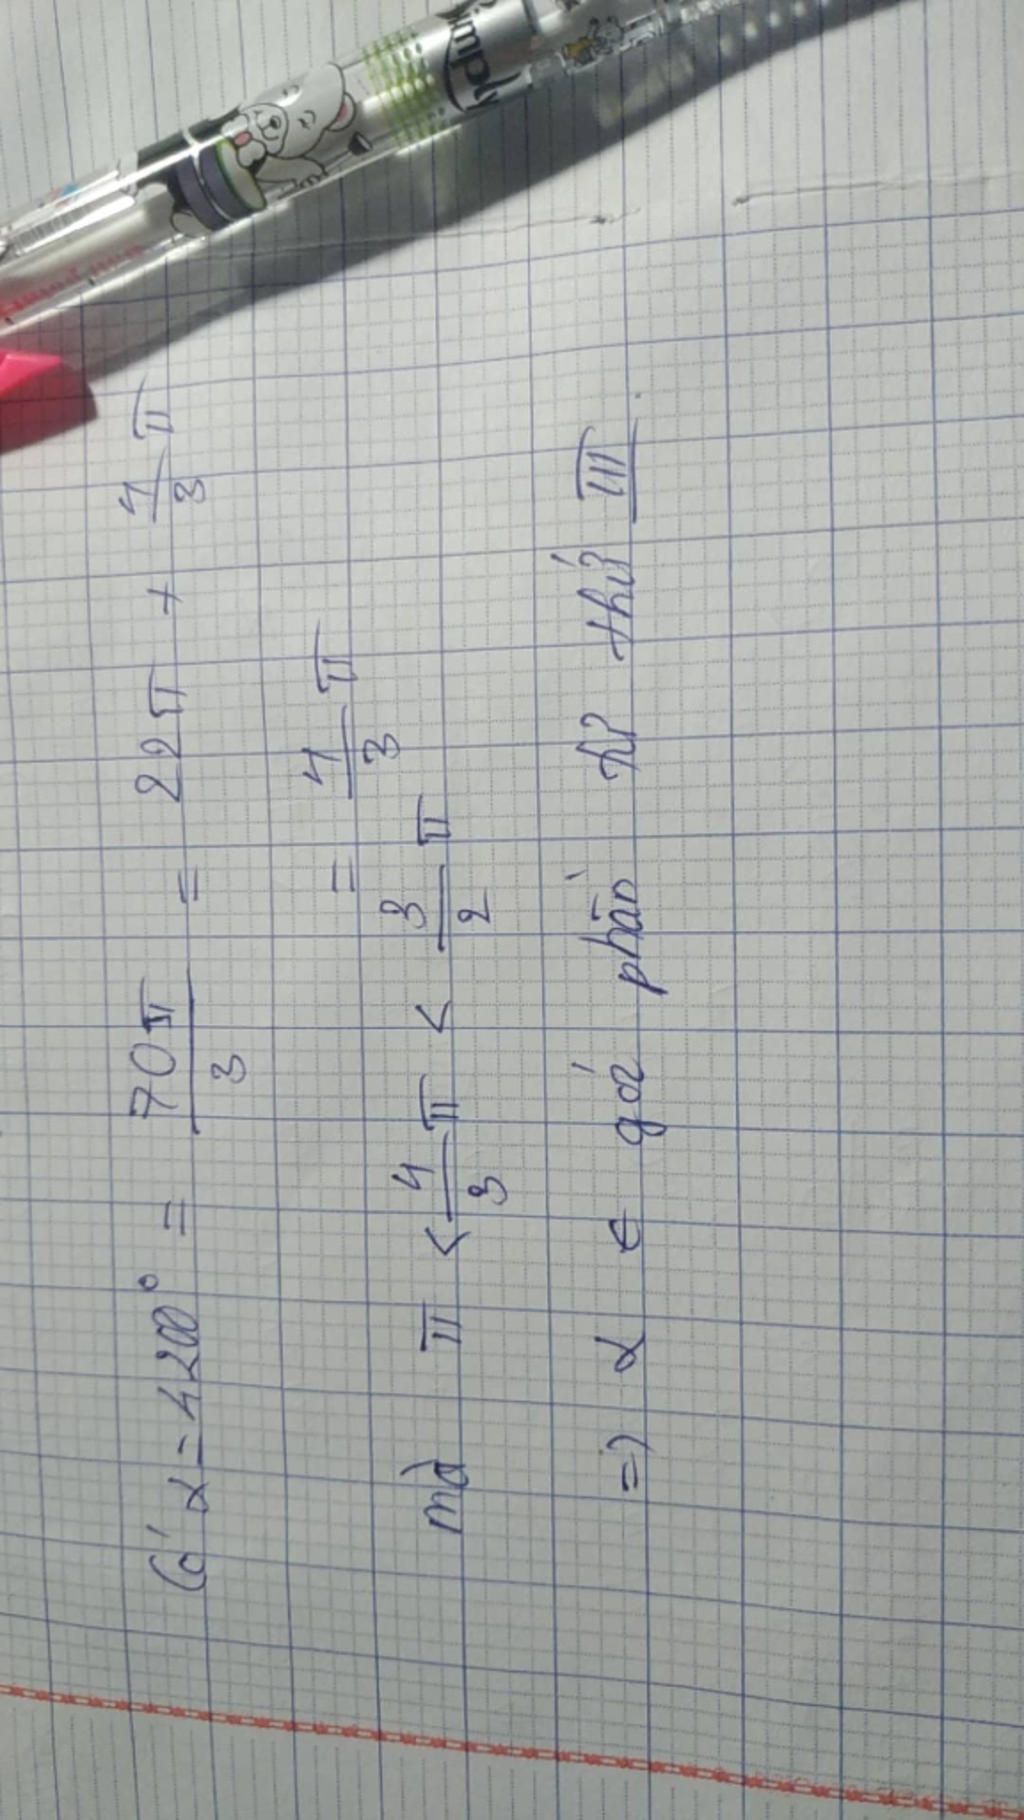 Có α = 4200° = 70π/3 = 22π + 4/3 π
= 4/3 π
mà π < 4/3 π < 3/2 π
=> α ∈ góc phần tư thứ III.
Simply